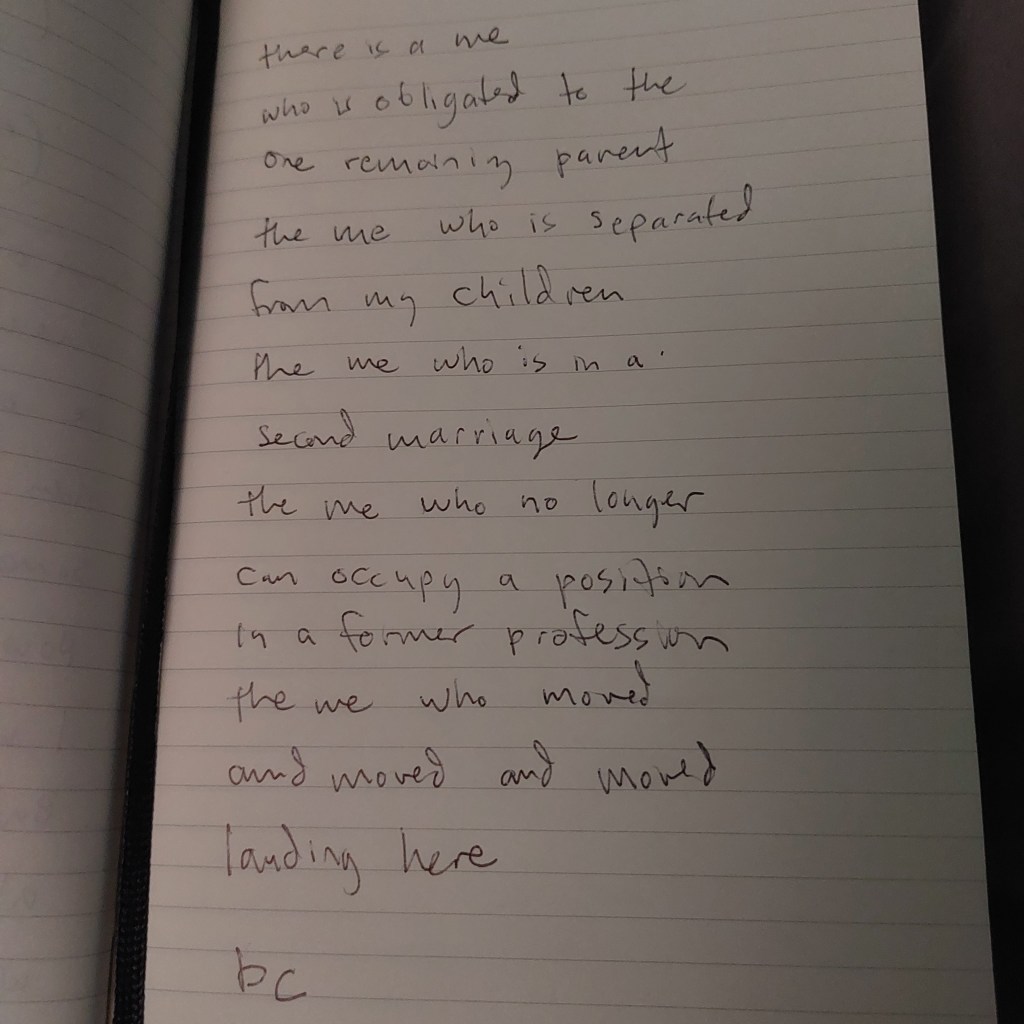 there is a me
who is obligated to the
one remaining parent
the me who is separated
from my children
the me who is in a
second marriage
the me who no longer
can occupy a position
in a former profession
the me who moved
and moved and moved
landing here
bc